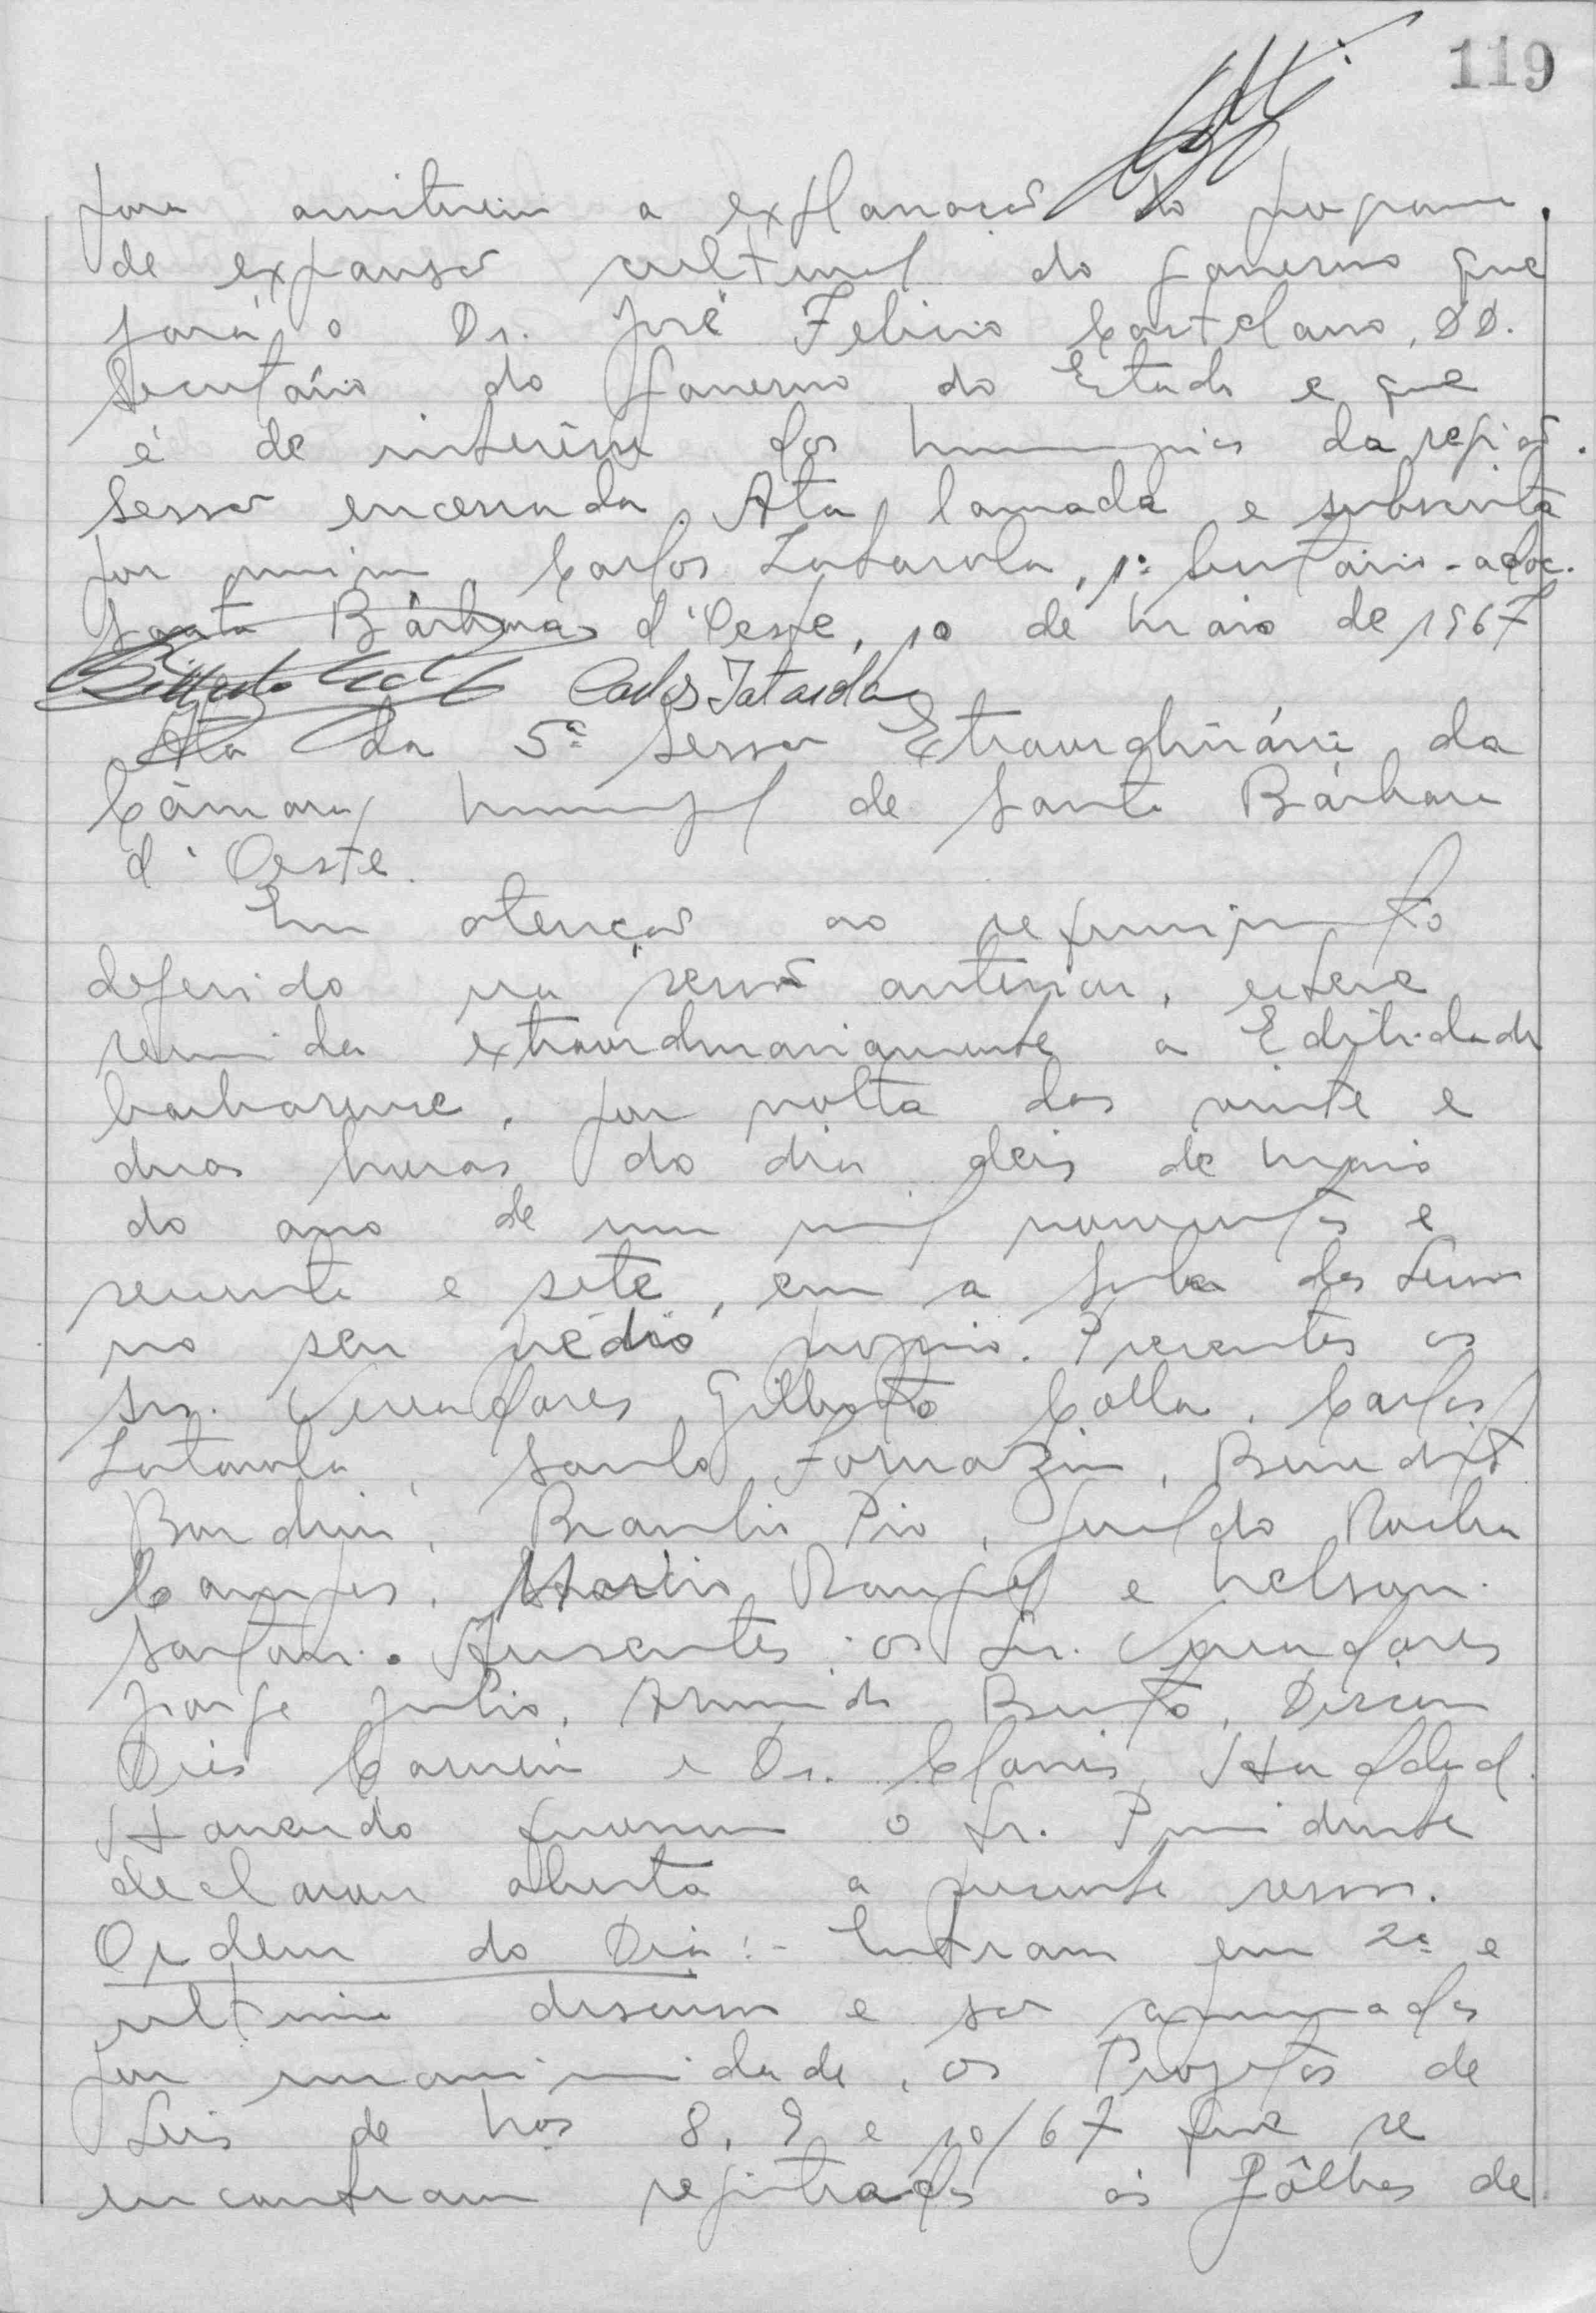 119
para assistirem a explanação do programa
de expansão cultural do governo que
fará o Dr. José Felicio Castelano, DD.
Secretário do Governo do Estado e que
é de interêsse dos municipios da região.
Sessão encerrada. Ata lavrada e subscrita
por mim, Carlos Latarola, 1º Secretário-adoc.
Santa Bárbara d'Oeste, 10 de maio de 1967
Carlos
Ata da 5ª Sessão Extraordinária da
Câmara Municipal de Santa Bárbara
d'Oeste.
Em atenção ao requerimento
deferido na sessão anterior, esteve
reunida extraordinariamente a Edilidade
barbarense, por volta das vinte e
duas horas do dia deis de maio
do ano de um mil novecentos e
sessenta e sete, em a sala das Sessões
no seu prédio proprio. Presentes os
Srs. Vereadores Gilberto Colla, Carlos
Latarola, Santo Fornazin, Benedito
Bardini, Braulio Pio, Geraldo Rocha
Campos, Rangel e Nelson
Sartori. Ausentes os Sr. Vereadores
Jorge Julio, Armindo Bento, Dirceu
Dias Carneiro e Dr. Clovis
Havendo quorum o Sr. Presidente
declarou aberta a presente sessão.
Ordem do Dia:- Entram em 2ª e
ultima discussão e são aprovados
por unanimidade, os Projetos de
Leis de nos 8, 9 e 10/67 que se
encontram registrados ás fôlhas de